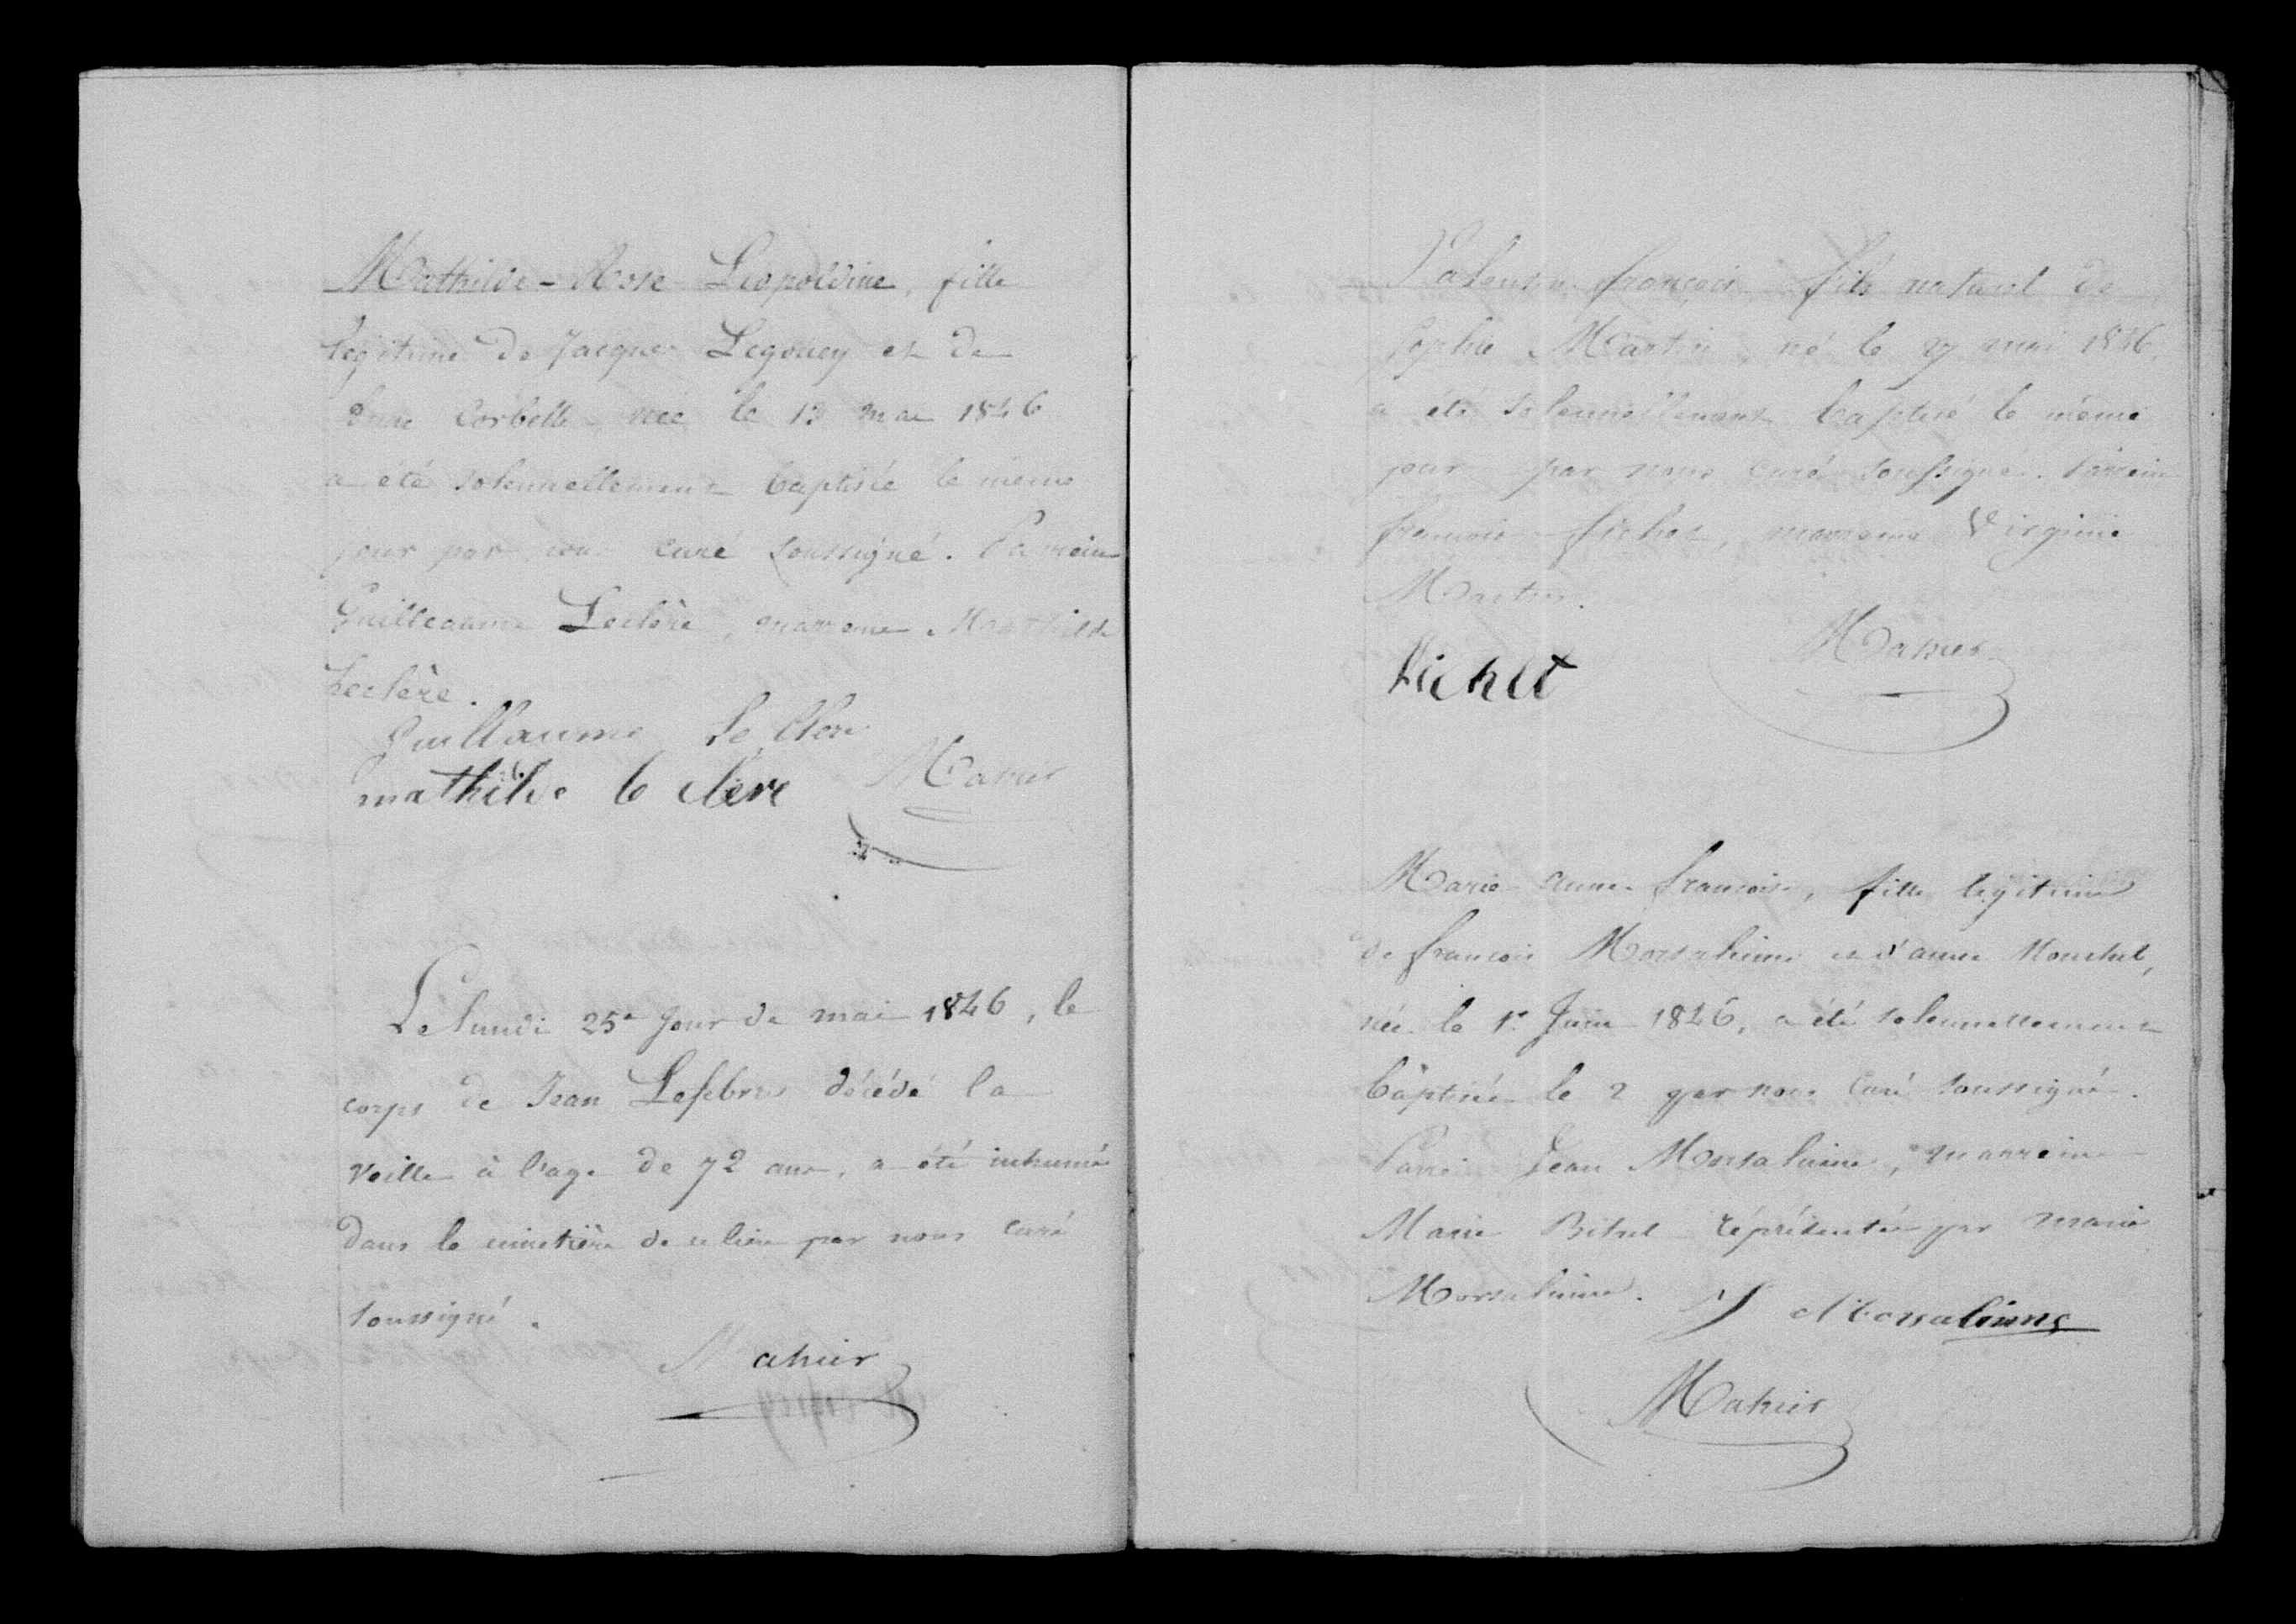 Mathilde-Rose Leopoldine, fille
légitime de Jacques Legouey et de
Corbelle née le 13 mai 1846
a été solennellement baptisée le même
jour par nous curé soussigné. Parrein
Guilleaume Leclère, marreine Mathilde
Leclère.
Guillaume Le Clere
mathilde le clere Mahier
Le lundi 25e jour de mai 1846, le
corps de Jean Lefebvre décédé la
veille à l'age de 72 ans, a été inhumé
dans le cimetière de ce lieu par nous curé
soussigné.
Mahier
françois fils naturel de
Sophie Martin, né le 27 mai 1846,
a été solennellement baptisé le même
jour par nous curé soussigné. Parrein
françois fichet, marreine Virginie
Martin.
Mahier
fichet
Marie anne françoise, fille légitime
de françois Morsalinne et d'anne Mouchel,
née le 1er Juin 1846, a été solennellement
baptisée le 2 par nous curé soussigné.
Parrein Jean Morsalinne, marreine
Marie représentée par marie
Morsalinne. J Morsalinne
Mahier